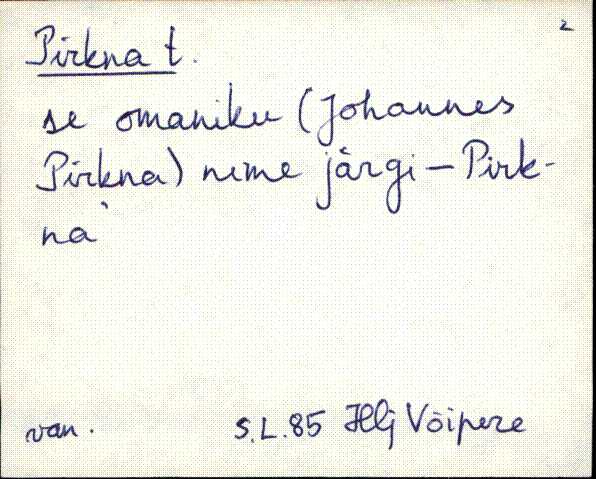 2
Pirkna t.
se omaniku (Johannes
Pirkna) nime järgi – Pirk-
na
van. S.L.85 Hlj Võipere